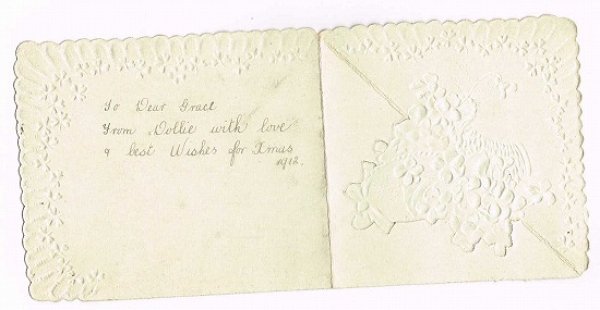 To Dear Grace
From Dollie with love
& best Wishes for Xmas
1912.